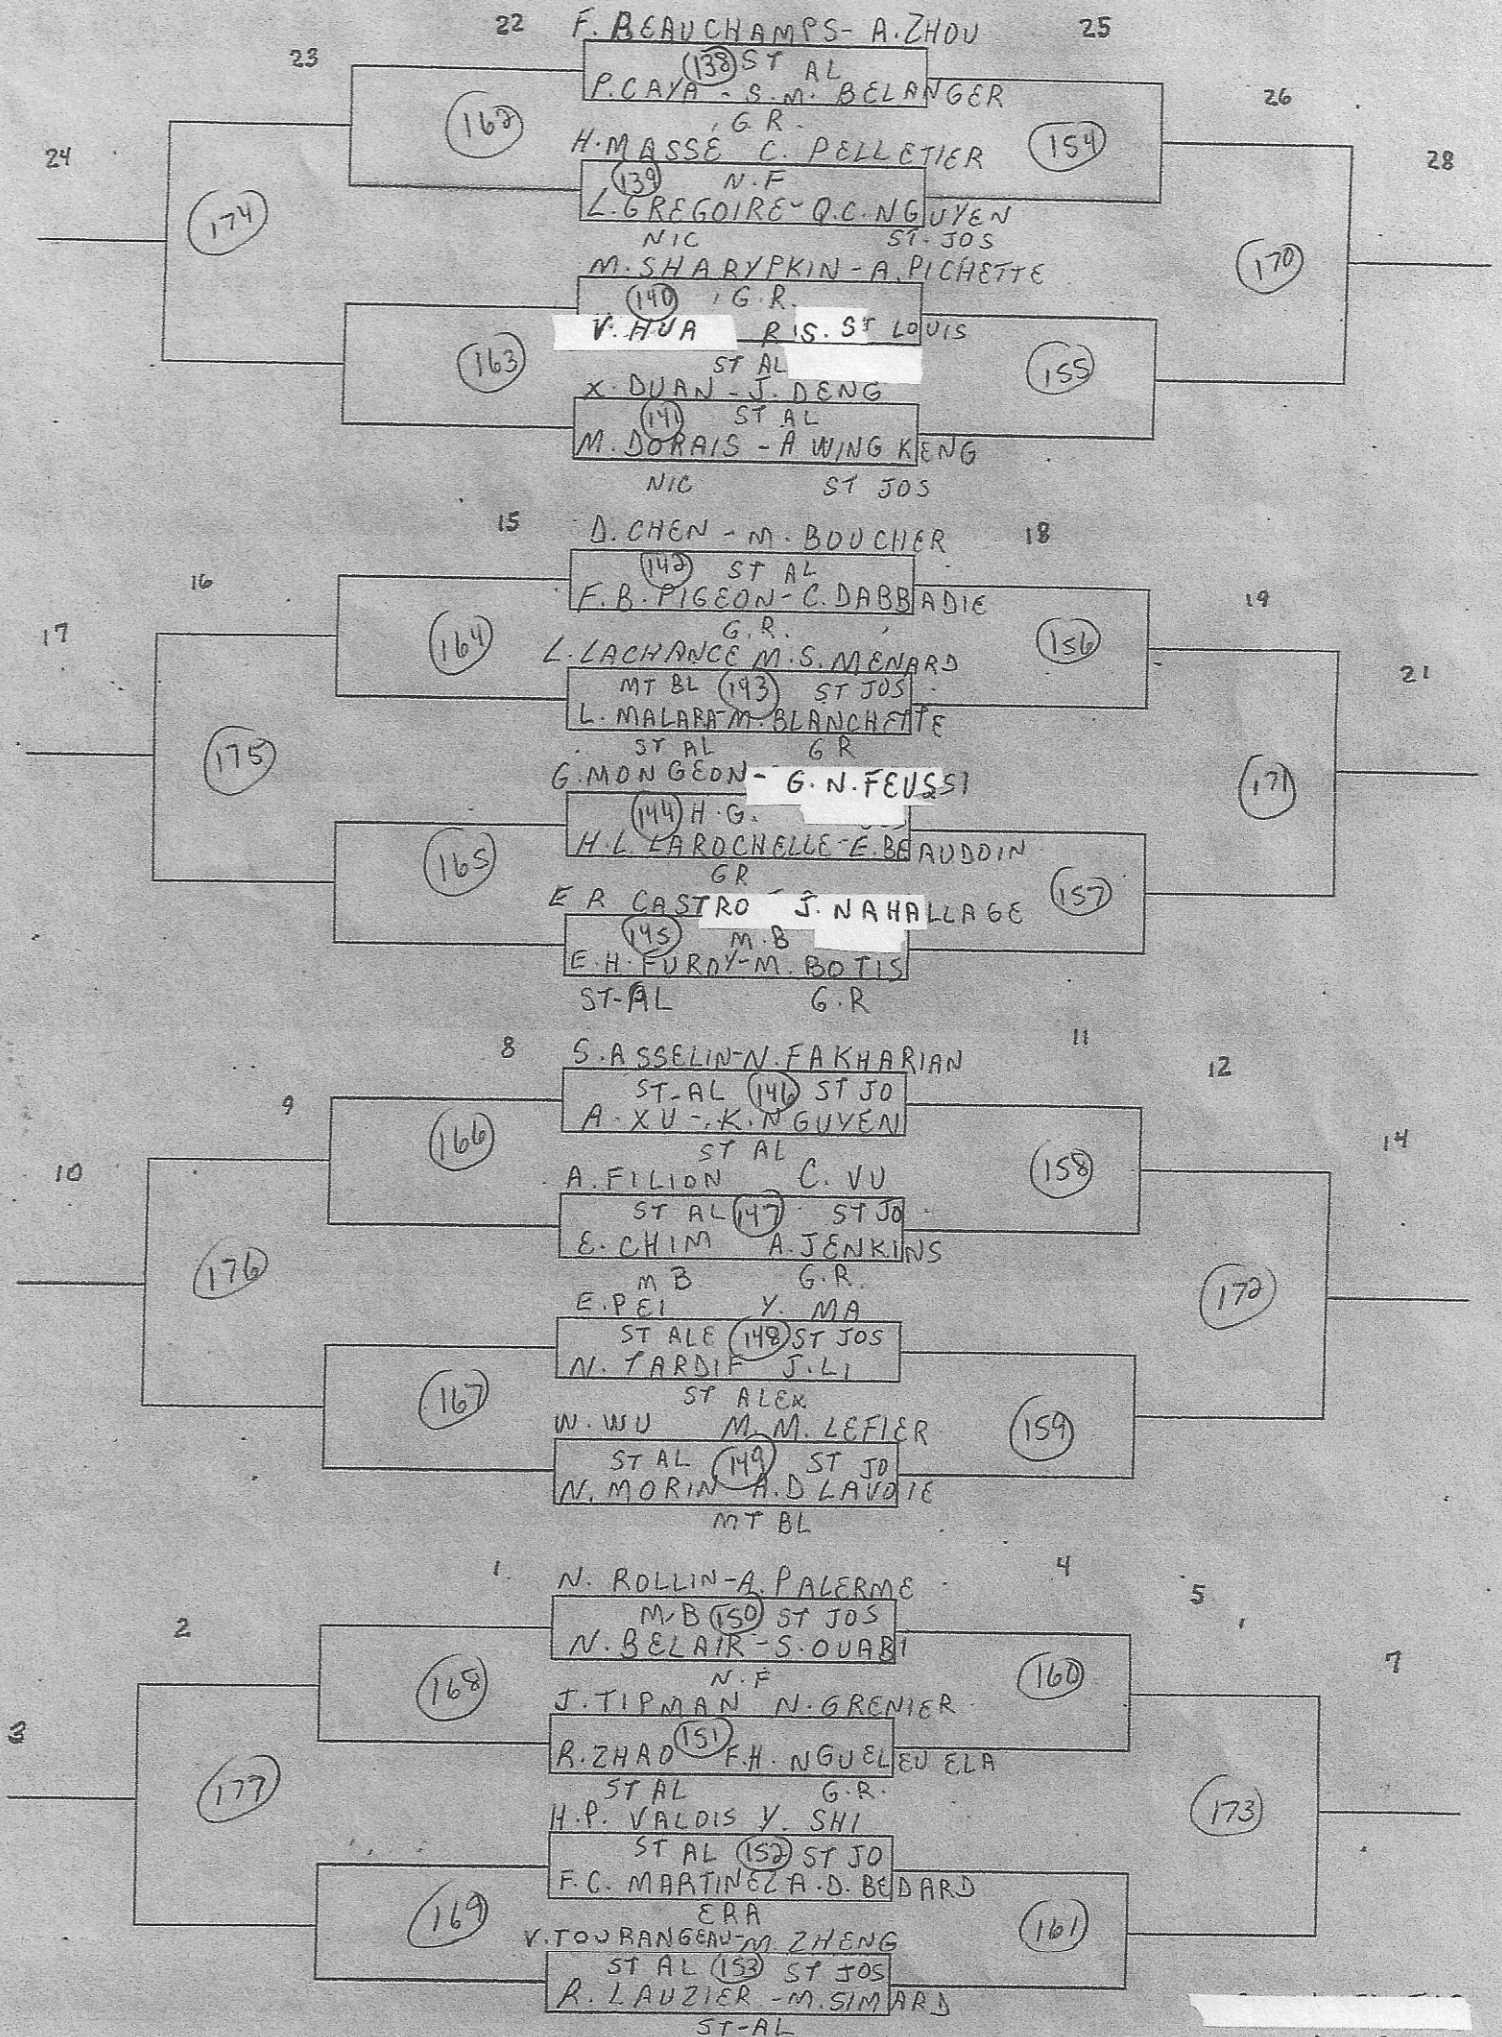 22 F. BEAUCHAMPS - A. ZHOU 25
23 (138) ST AL
P. CAYA - S.M. BELANGER 26
(162) G.R. (154)
24 H. MASSE C. PELLETIER 28
(139) N.F
(174) L. GREGOIRE - Q.C. NGUYEN
NIC ST-JOS
M. SHARYPKIN - A. PICHETTE (170)
(140) G.R.
V. HUA R IS. ST LOUIS
(163) ST AL (155)
X. DUAN - J. DENG
(141) ST AL
M. DORAIS - A WING KENG
NIC ST JOS
15 D. CHEN - M. BOUCHER 18
16 (142) ST AL
F.B. PIGEON - C. DABBADIE 19
17 (164) G.R. (156)
L. LACHANCE M.S. MENARD
MT BL (143) ST JOS 21
L. MALARA - M. BLANCHETTE
(175) ST AL G R
G. MONGEON - G.N. FEUSSI (171)
(144) H.G.
H.L. LAROCHELLE - E. BEAUDOIN
(165) GR (157)
E R CASTRO - J. NAHALLAGE
(145) M.B
E.H. FURDY - M. BOTIS
ST-AL G.R
8 S. ASSELIN - N. FAKHARIAN 11
9 ST-AL (146) ST JO 12
A. XU - K. NGUYEN
(166) ST AL 14
10 A. FILION C. VU (158)
ST AL (147) ST JO
E. CHIM A. JENKINS
(176) M B G.R. (172)
E. PEI Y. MA
ST ALE (148) ST JOS
N. TARDIF J. LI
(167) ST ALEX
W. WU M.M. LEFIER (159)
ST AL (149) ST JO
N. MORIN A.D LAVOIE
MT BL
1 N. ROLLIN - A. PALERME 4
2 M.B (150) ST JOS 5
N. BELAIR - S. OUABI 7
(168) N.F (160)
3 J. TIPMAN N. GRENIER
(151)
R. ZHAO F.H. NGUELEU ELA
(177) ST AL G.R. (173)
H.P. VALOIS Y. SHI
ST AL (152) ST JO
F.C. MARTINEZ A.D. BEDARD
(169) ERA (161)
V. TOURANGEAU - M. ZHENG
ST AL (153) ST JOS
R. LAUZIER - M. SIMARD
ST-AL